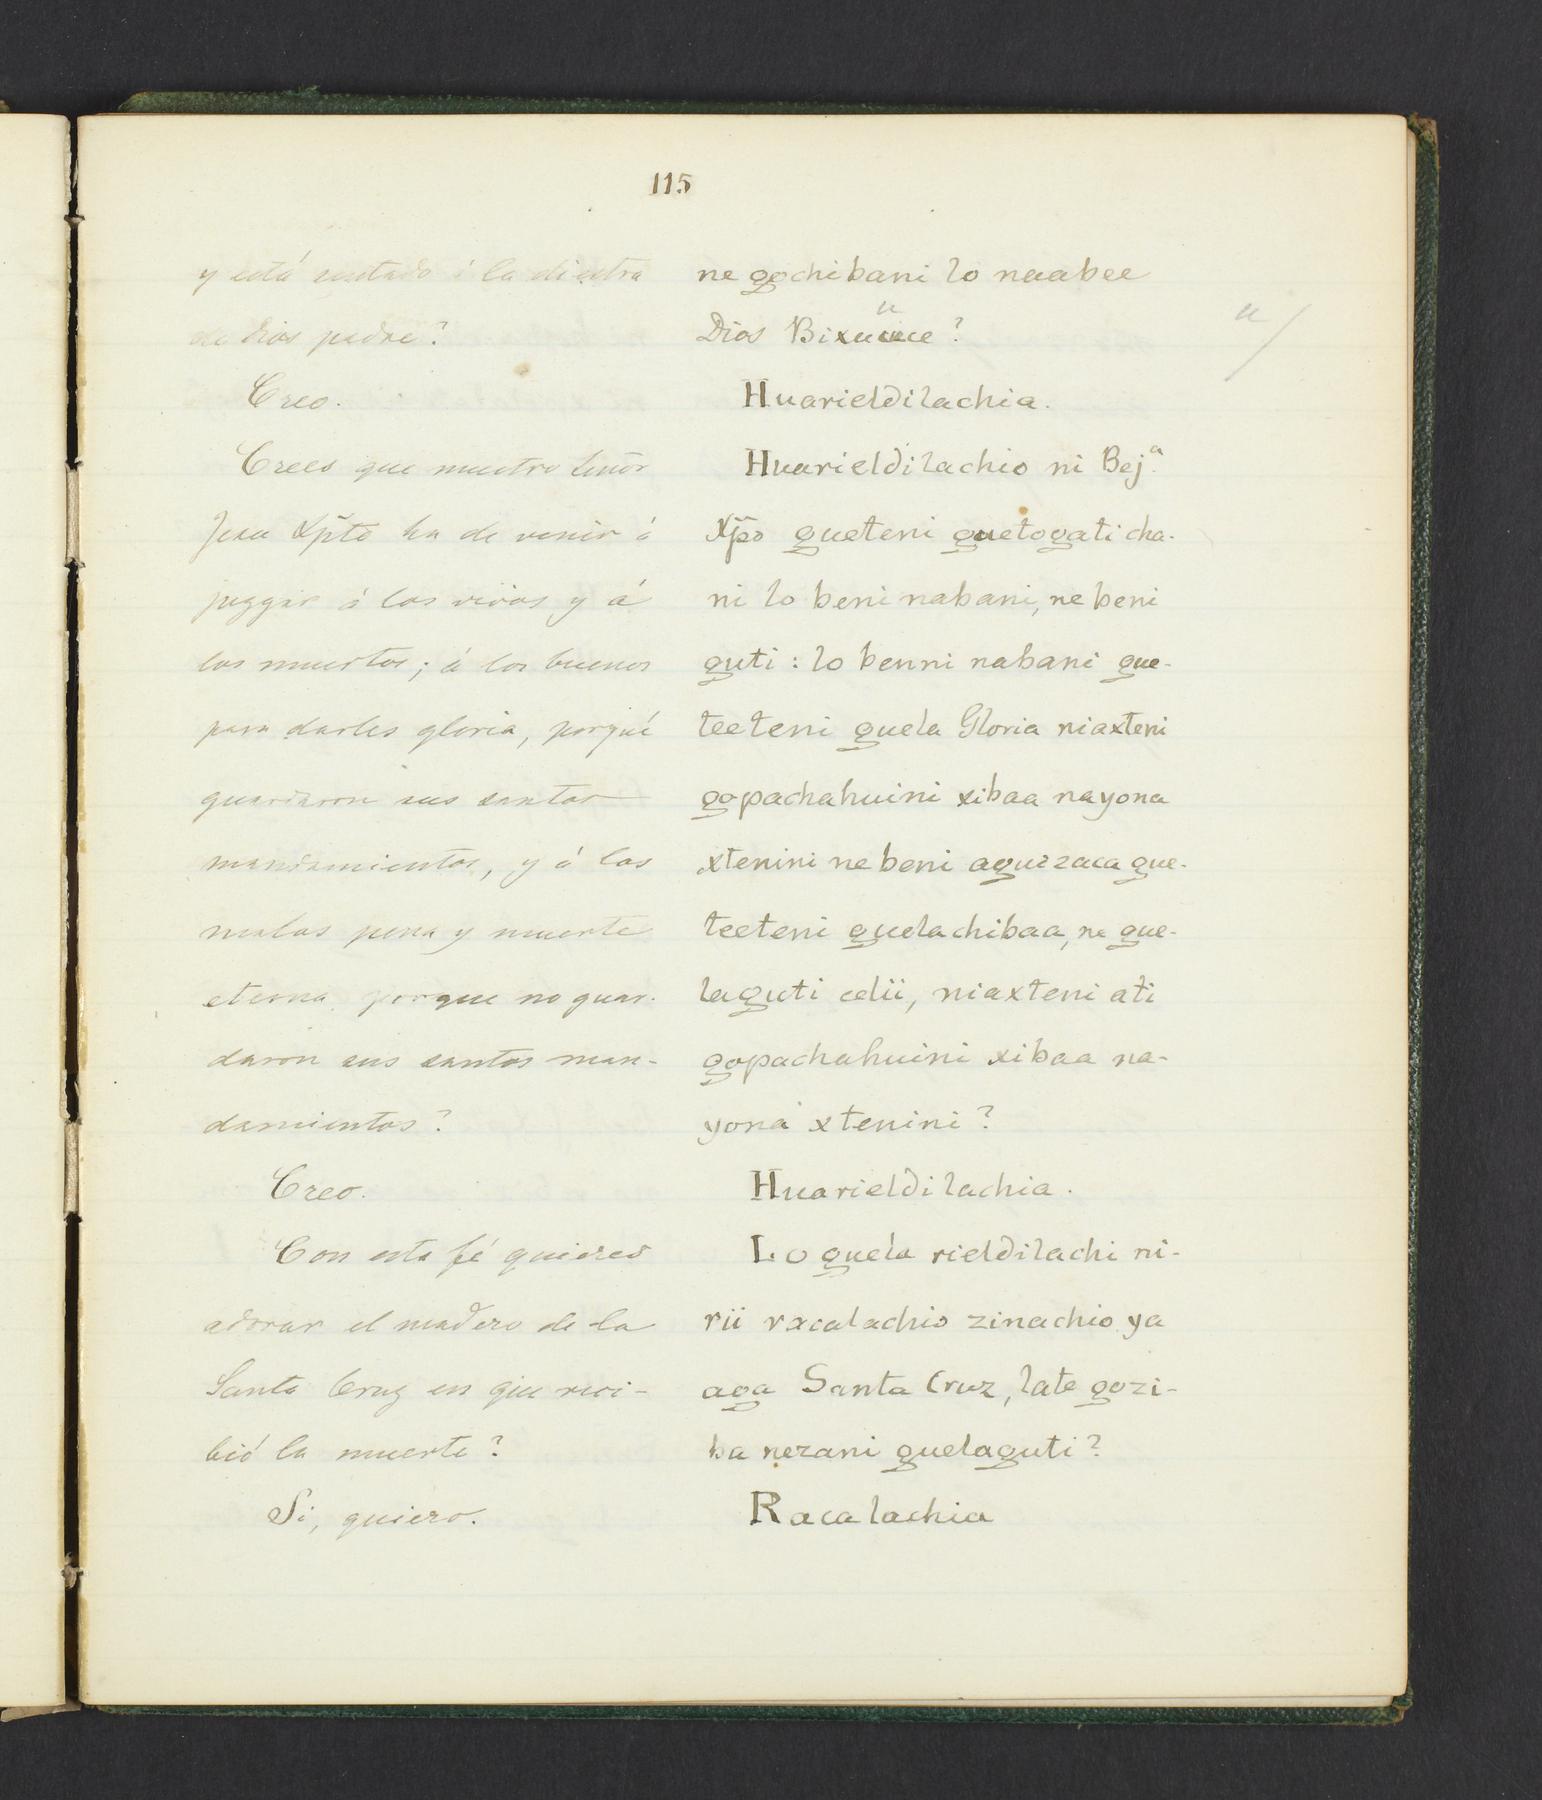 115
y está sentado á la diestra
de Dios padre?
Creo.
Crees que nuestro Señor
Jesu Xp̄to ha de venir á
juzgar á los vivos y á
los muertos; á los buenos
para darles gloria, porqué
guardaron sus santos
mandamientos, y á los
malos pena y muerte
eterna porque no guar-
daron sus santos man-
damientos?
Creo.
Con esta fé quieres
adorar el madero de la
Santa Cruz en que reci-
bió la muerte?
Si, quiero.
ne gochibani lo naabee
Dios Bixuuce?
u
u/
Huarieldilachia.
Huarieldilachio ni Bej.ª
Xp̄o gueteni guetogaticha-
ni lo beni nabani, ne beni
guti: lo benni nabani gue-
teeteni guela Gloria niaxteni
gopachahuini xibaa nayona
xtenini ne beni aguezaca gue-
teeteni guelachibaa, ne gue-
laguti celii, niaxteni ati
gopachahuini xibaa na-
yona xtenini?
Huarieldilachia.
Lo guela rieldilachi ni-
rii racalachio zinachio ya
aga Santa Cruz, late gozi-
ba nezani guelaguti?
Racalachia